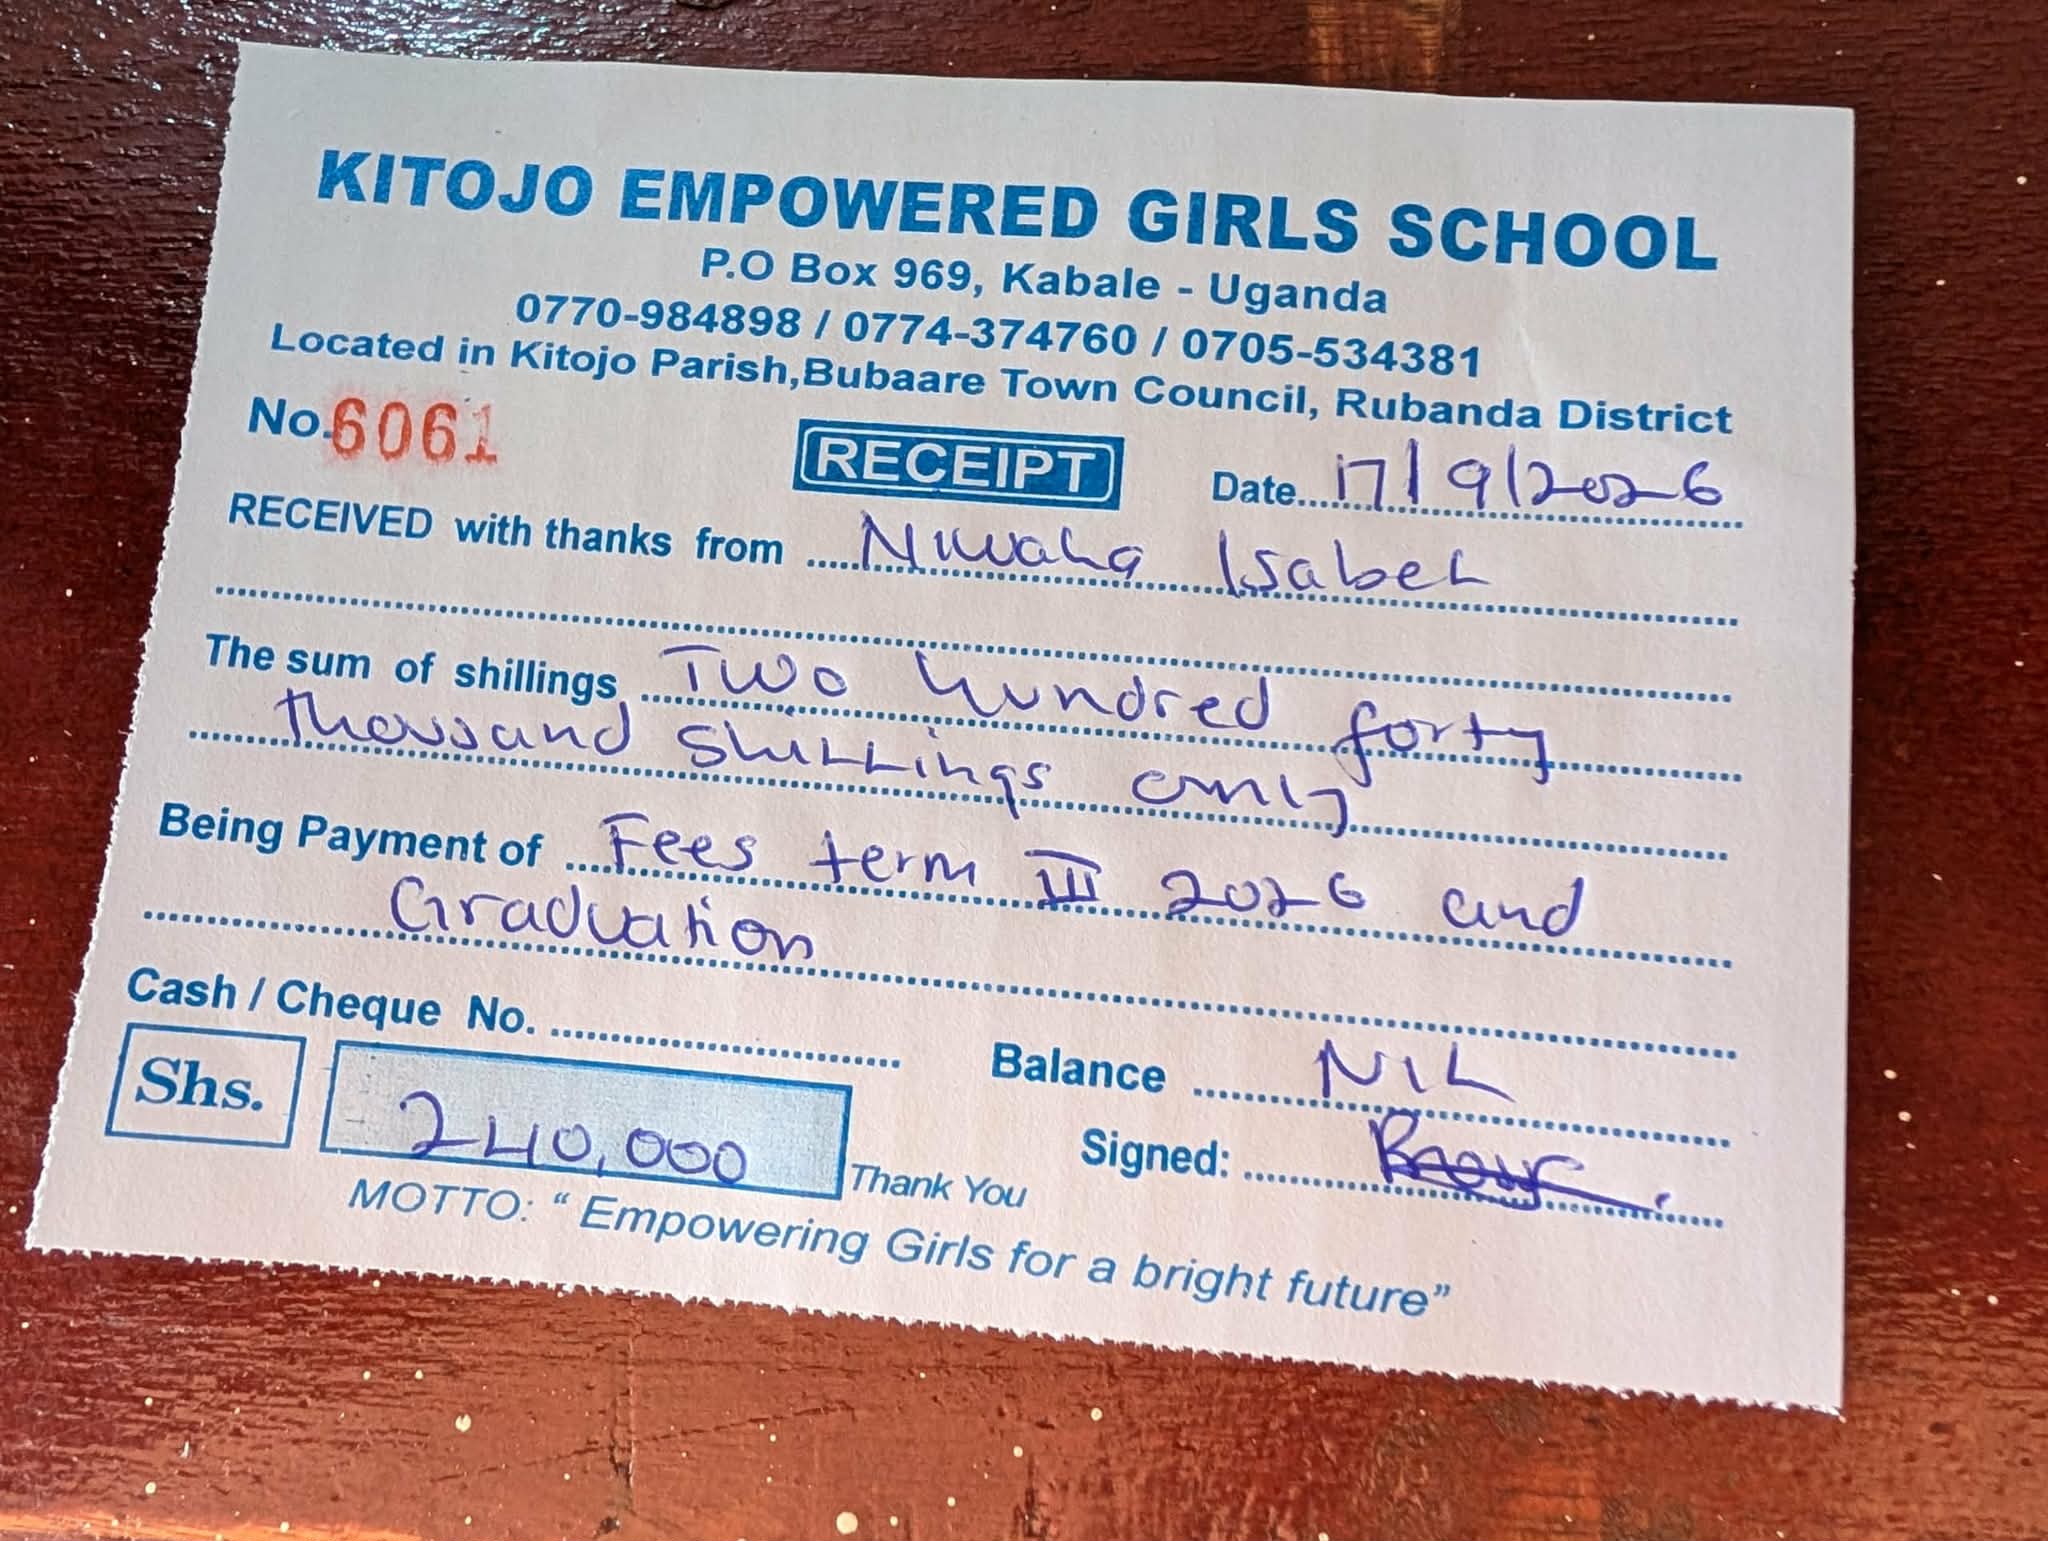 KITOJO EMPOWERED GIRLS SCHOOL
P.O Box 969, Kabale - Uganda
0770-984898 / 0774-374760 / 0705-534381
Located in Kitojo Parish,Bubaare Town Council, Rubanda District
No.6061 RECEIPT Date....17/9/2026
RECEIVED with thanks from Niwaha Isabel
The sum of shillings Two hundred forty
thousand shillings only
Being Payment of Fees term III 2026 and
Graduation
Cash / Cheque No. Balance NIL
Shs. 240,000 Thank You Signed:
MOTTO: “ Empowering Girls for a bright future”